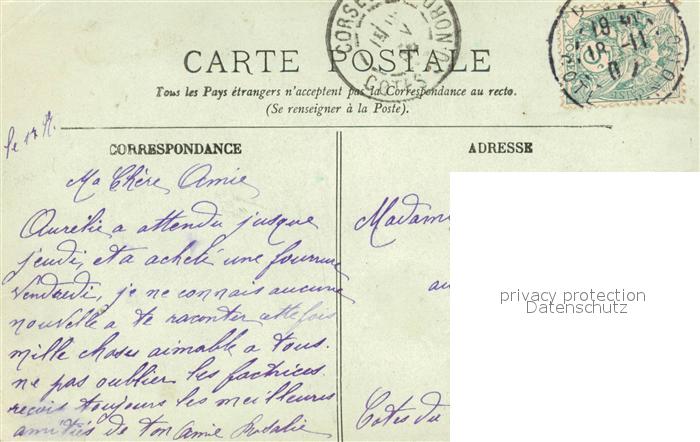 CARTE POSTALE
Tous les Pays étrangers n'acceptent pas la Correspondance au recto.
(Se renseigner à la Poste).
CORRESPONDANCE
Ma Chère Amie
Aurélie a attendu jusque
jeudi, et a acheté une fourrure
Vendredi, je ne connais aucune
nouvelle a te raconter cette fois
mille choses aimable a tous.
ne pas oublier les factrices
reçois toujours les meilleures
amitiés de ton amie Rosalie
ADRESSE
Madam
au
Cotes du
privacy protection
Datenschutz